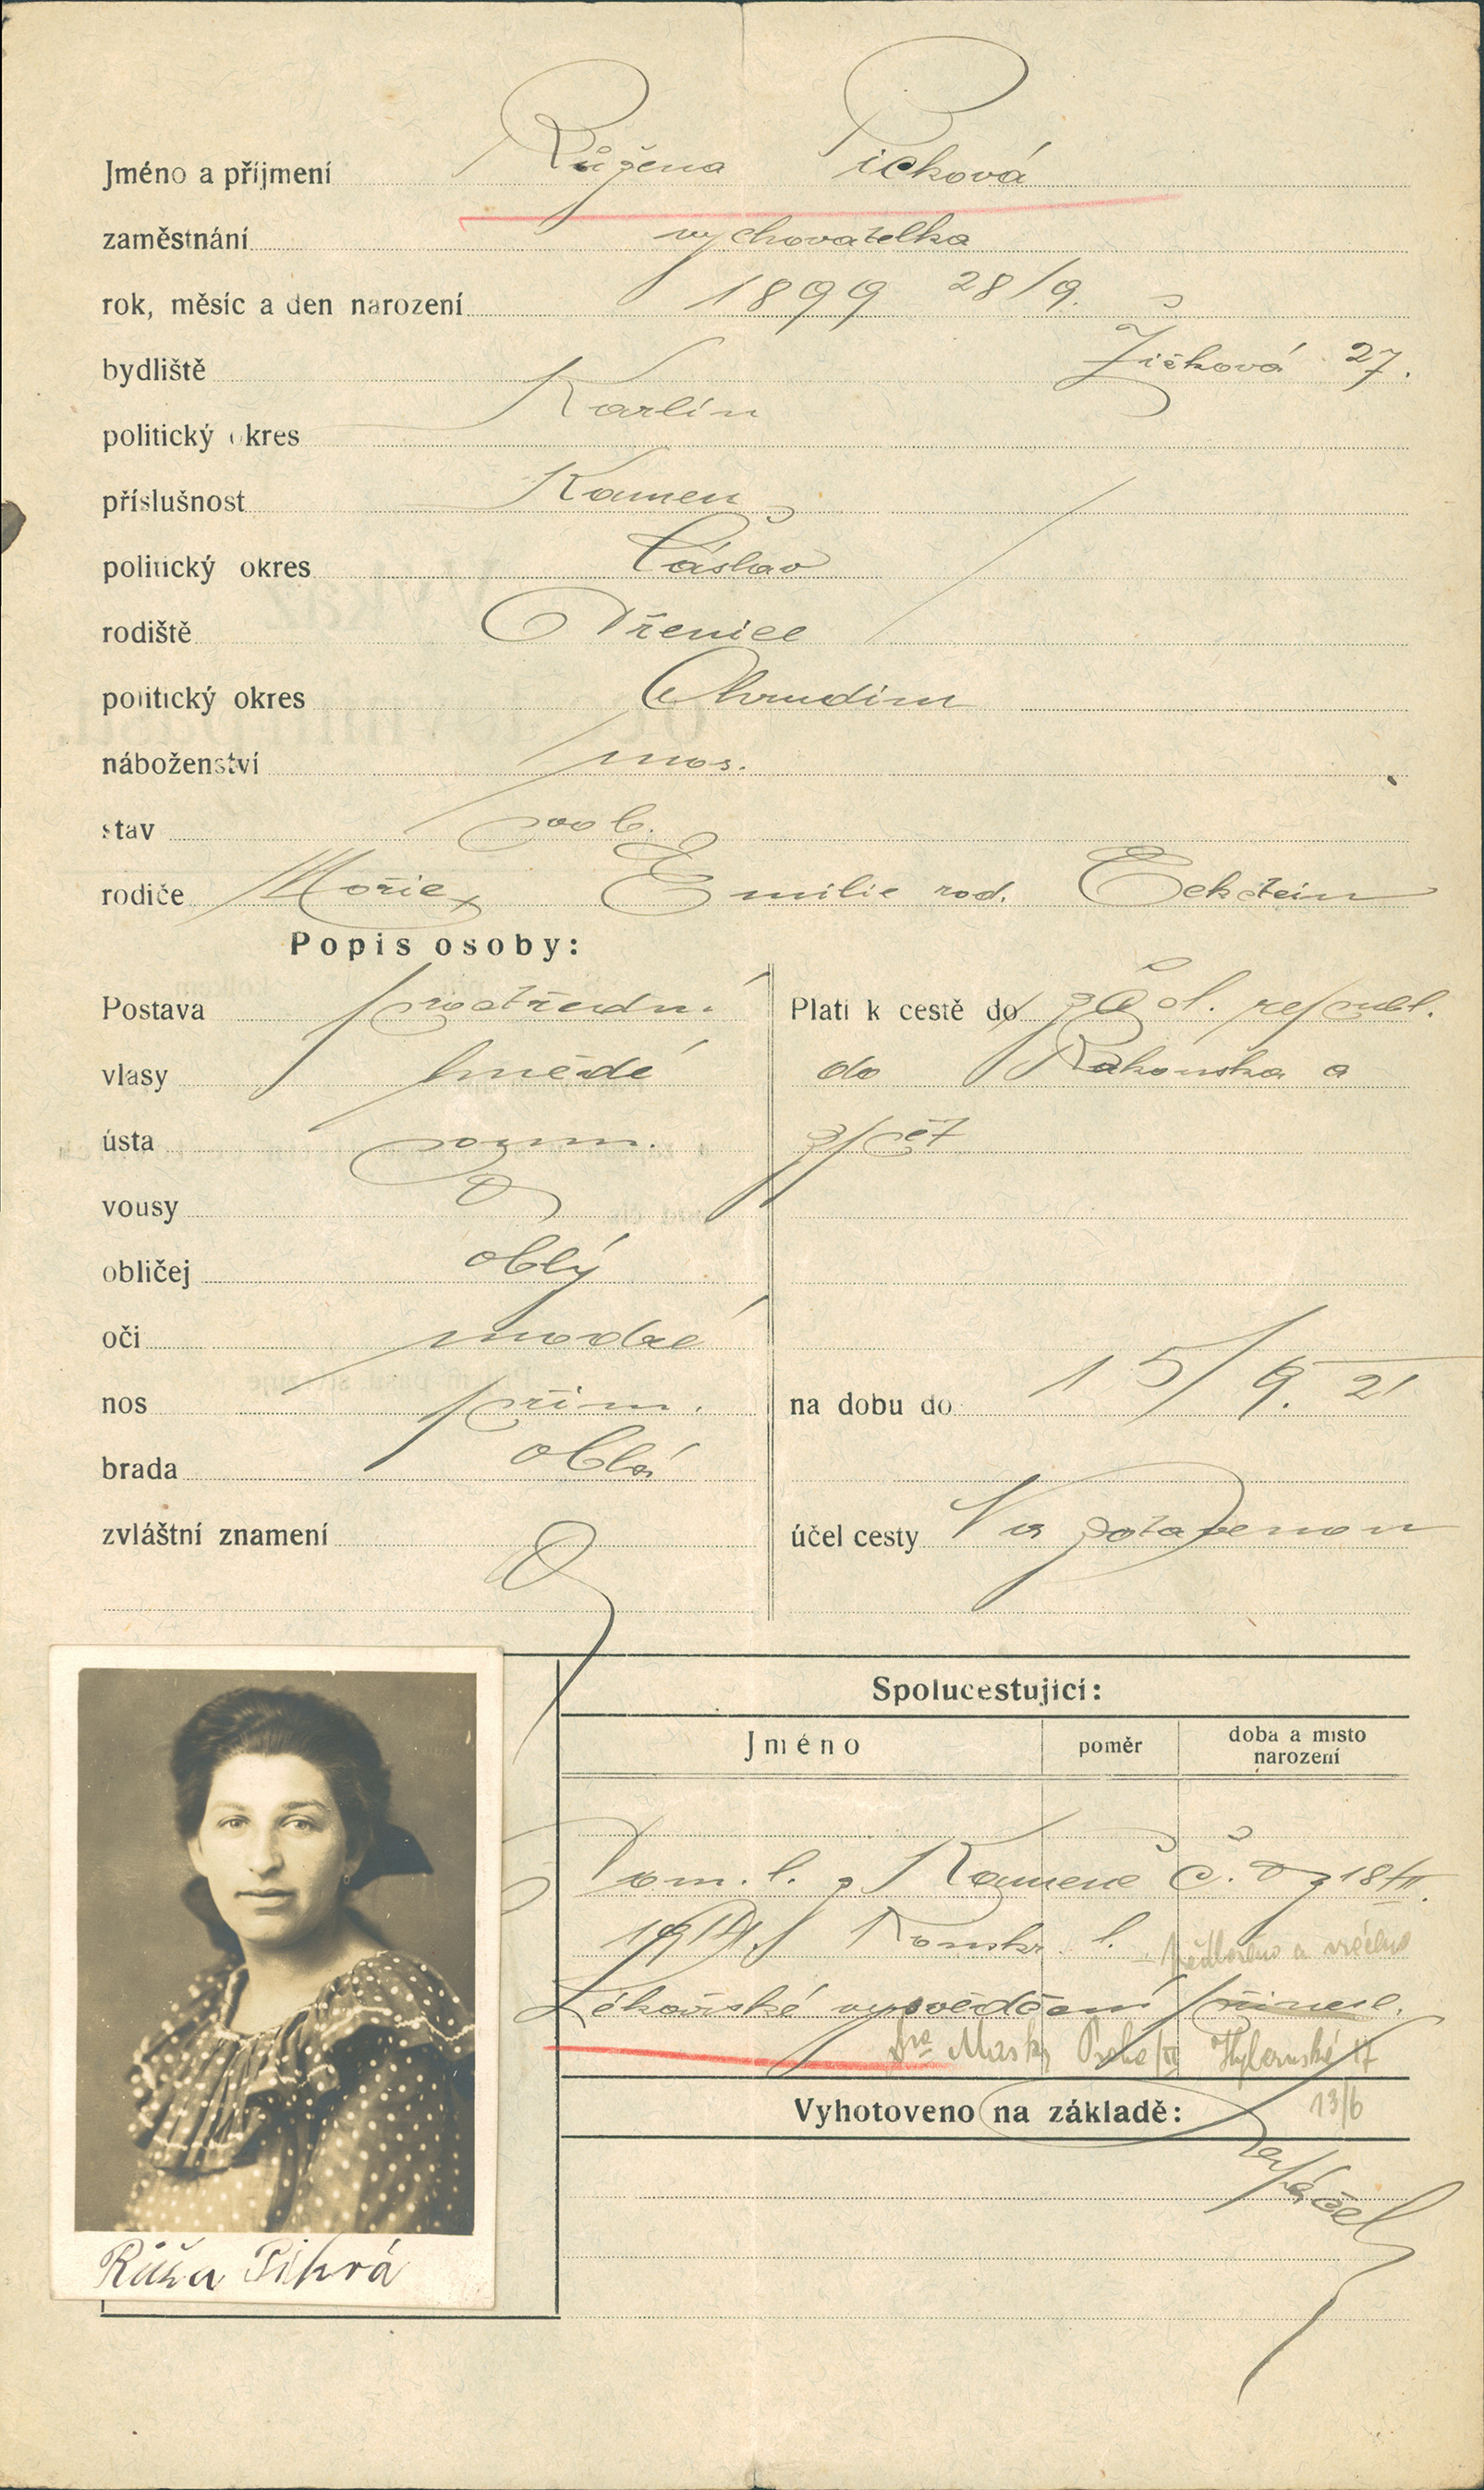 Jméno a příjmení Růžena Picková
zaměstnání vychovatelka
rok, měsíc a den narození 1899 28/9.
bydliště Žižkova 27.
politický okres Karlín
příslušnost Kamen
politický okres Čáslav
rodiště Třenice
politický okres Chrudim
náboženství mos.
stav svob.
rodiče Mořic Emilie roz. Eckstein
Popis osoby:
Postava prostřední
vlasy hnědé
ústa soum.
vousy
obličej oblý
oči modré
nos přím.
brada oblá
zvláštní znamení
Platí k cestě do z Čsl. republ.
do Rakouska a
zpět
na dobu do 15/9. 21
účel cesty Na zotavenou
Spolucestující:
Jméno poměr doba a místo narození
Dom. l. z Kamene č. 8 z 18/II.
1914. Konskr. l.
předloženo a vráceno
Lékařské vysvědčení přinese.
Dra Praha/II 17
Vyhotoveno na základě: 13/6
Růža Piková